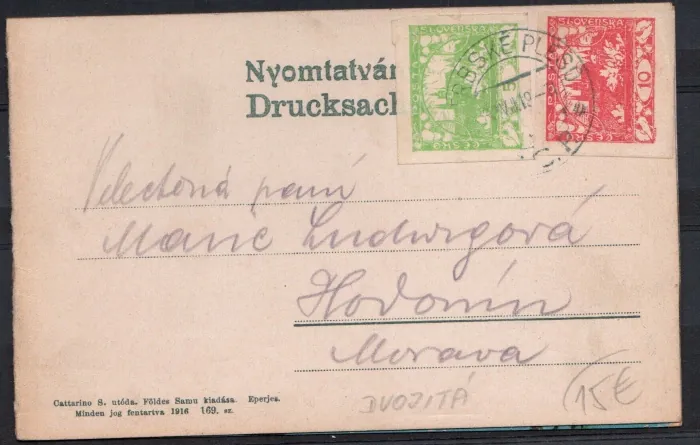 Nyomtatván
Drucksach
SLOVENSKÁ
5
SLOVENSKÁ
10
Velectěná paní
Marie Ludwigová
Hodonín
Morava
Cattarino S. utóda. Földes Samu kiadása. Eperjes.
Minden jog fentartva 1916 169. sz.
DVOJITÁ
15€